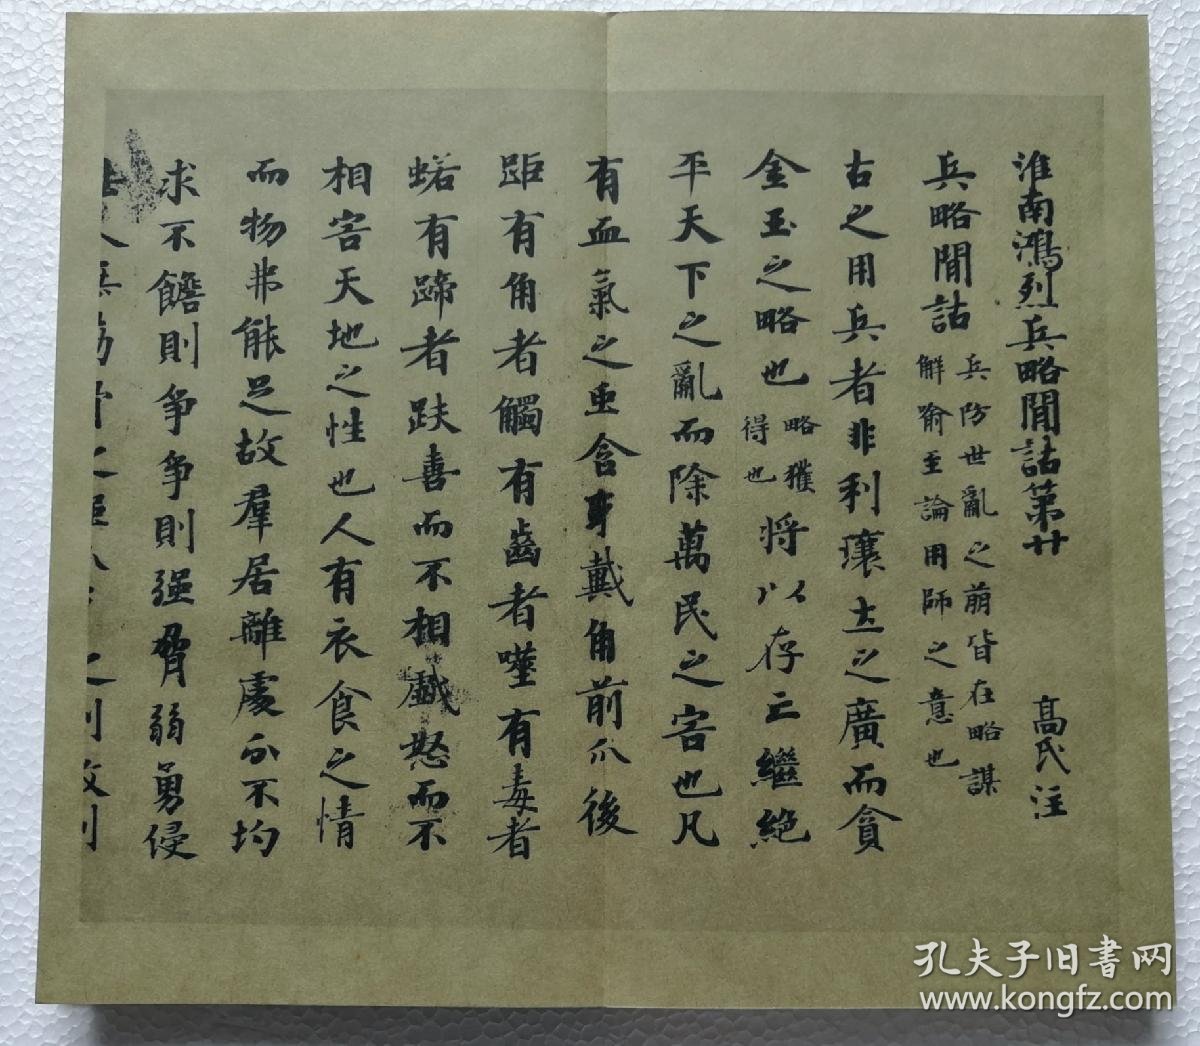 淮南鴻烈兵略閒詁第廿 高氏注
兵略閒詁 兵防世亂之萠皆在略謀
解喻至論用師之意也
古之用兵者非利壤土之廣而貪
金玉之略也 略獲
得也 將以存亡繼絶
平天下之亂而除萬民之害也凡
有血氣之虫含牙戴角前爪後
距有角者觸有齒者噬有毒者
蛞有蹄者趺喜而不相戯怒而不
相害天地之性也人有衣食之情
而物弗能足故羣居雜處分不均
求不饍則爭爭則强脅弱勇侵
人無筋骨之 之利 故
孔夫子旧書网
www.kongfz.com